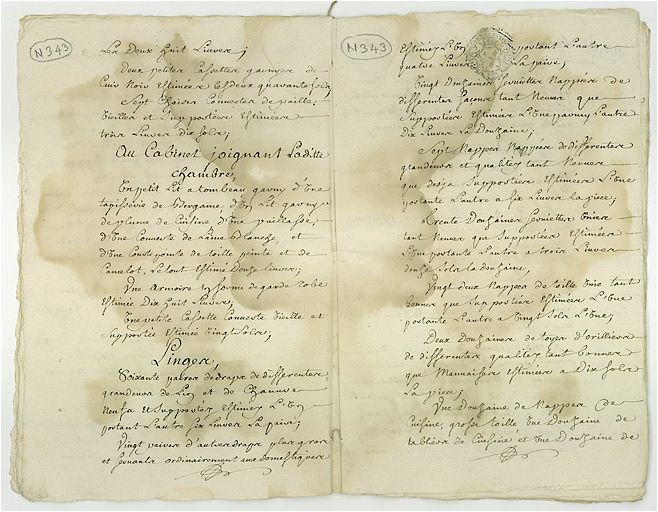 N343
Les Deux huit Livres;
Deux petites Cassettes garnyes de
Cuir Noir Estimées Es deux quarante sols,
Sept Chaises Couvertes de paille,
Vieilles et Supportées Estimées
trois Livres dix sols;
Au Cabinet joignant Laditte
chambre,
Un petit Lit a tombeau garny d'Une
tapisserie de Bergame d'Un Lit garny
de plume de Cuisine d'Une paillasse,
d'Une Couverte de Laine blanche, et
d'Une Contrepointe de toille peinte et de
Camelot, Le tout Estimé Douze livres;
Une armoire en forme de garde robe
Estimée Dix huit Livres;
Une petite Cassette Couverte Vieille et
Supportée Estimée Vingt sols;
Linges,
Soixante paires de draps de differentes
grandeurs de Lin et de Chanvre
Neufs et Supportés Estimez L'Un
portant L'autre six Livres La paire;
Vingt paires d'autres draps plus gros
et servants ordinairement aux Domestiques
N343
Estimez L'Un portant L'autre
quatre Livres La paire;
Vingt Douzaines Serviettes Nappées de
differentes façons tant Neuves que
Supportées Estimées L'Une parmy L'autre
Dix Livres La Douzaine;
Sept Nappes Nappées de differentes
grandeurs et qualitez tant Neuves
que deja Supportées Estimées L'Une
portante L'autre a six Livres la piece,
Trente Douzaines Serviettes Unies
tant Neuves que Supportées Estimées
L'Une portante L'autre a trois Livres
douze sols la douzaine,
Vingt deux Nappes de toille Unie tant
bonnes que Supportées Estimées L'Une
portante L'autre a Vingt sols L'Une;
Deux Douzaines de toyes d'orilliers
de differentes qualitez tant bonnes
que Mauvaises Estimées a Dix sols
La piece;
Une Douzaine de Nappes de
Cuisine, grosse toille Une Douzaine de
tabliers de Cuisine et Une Douzaine de